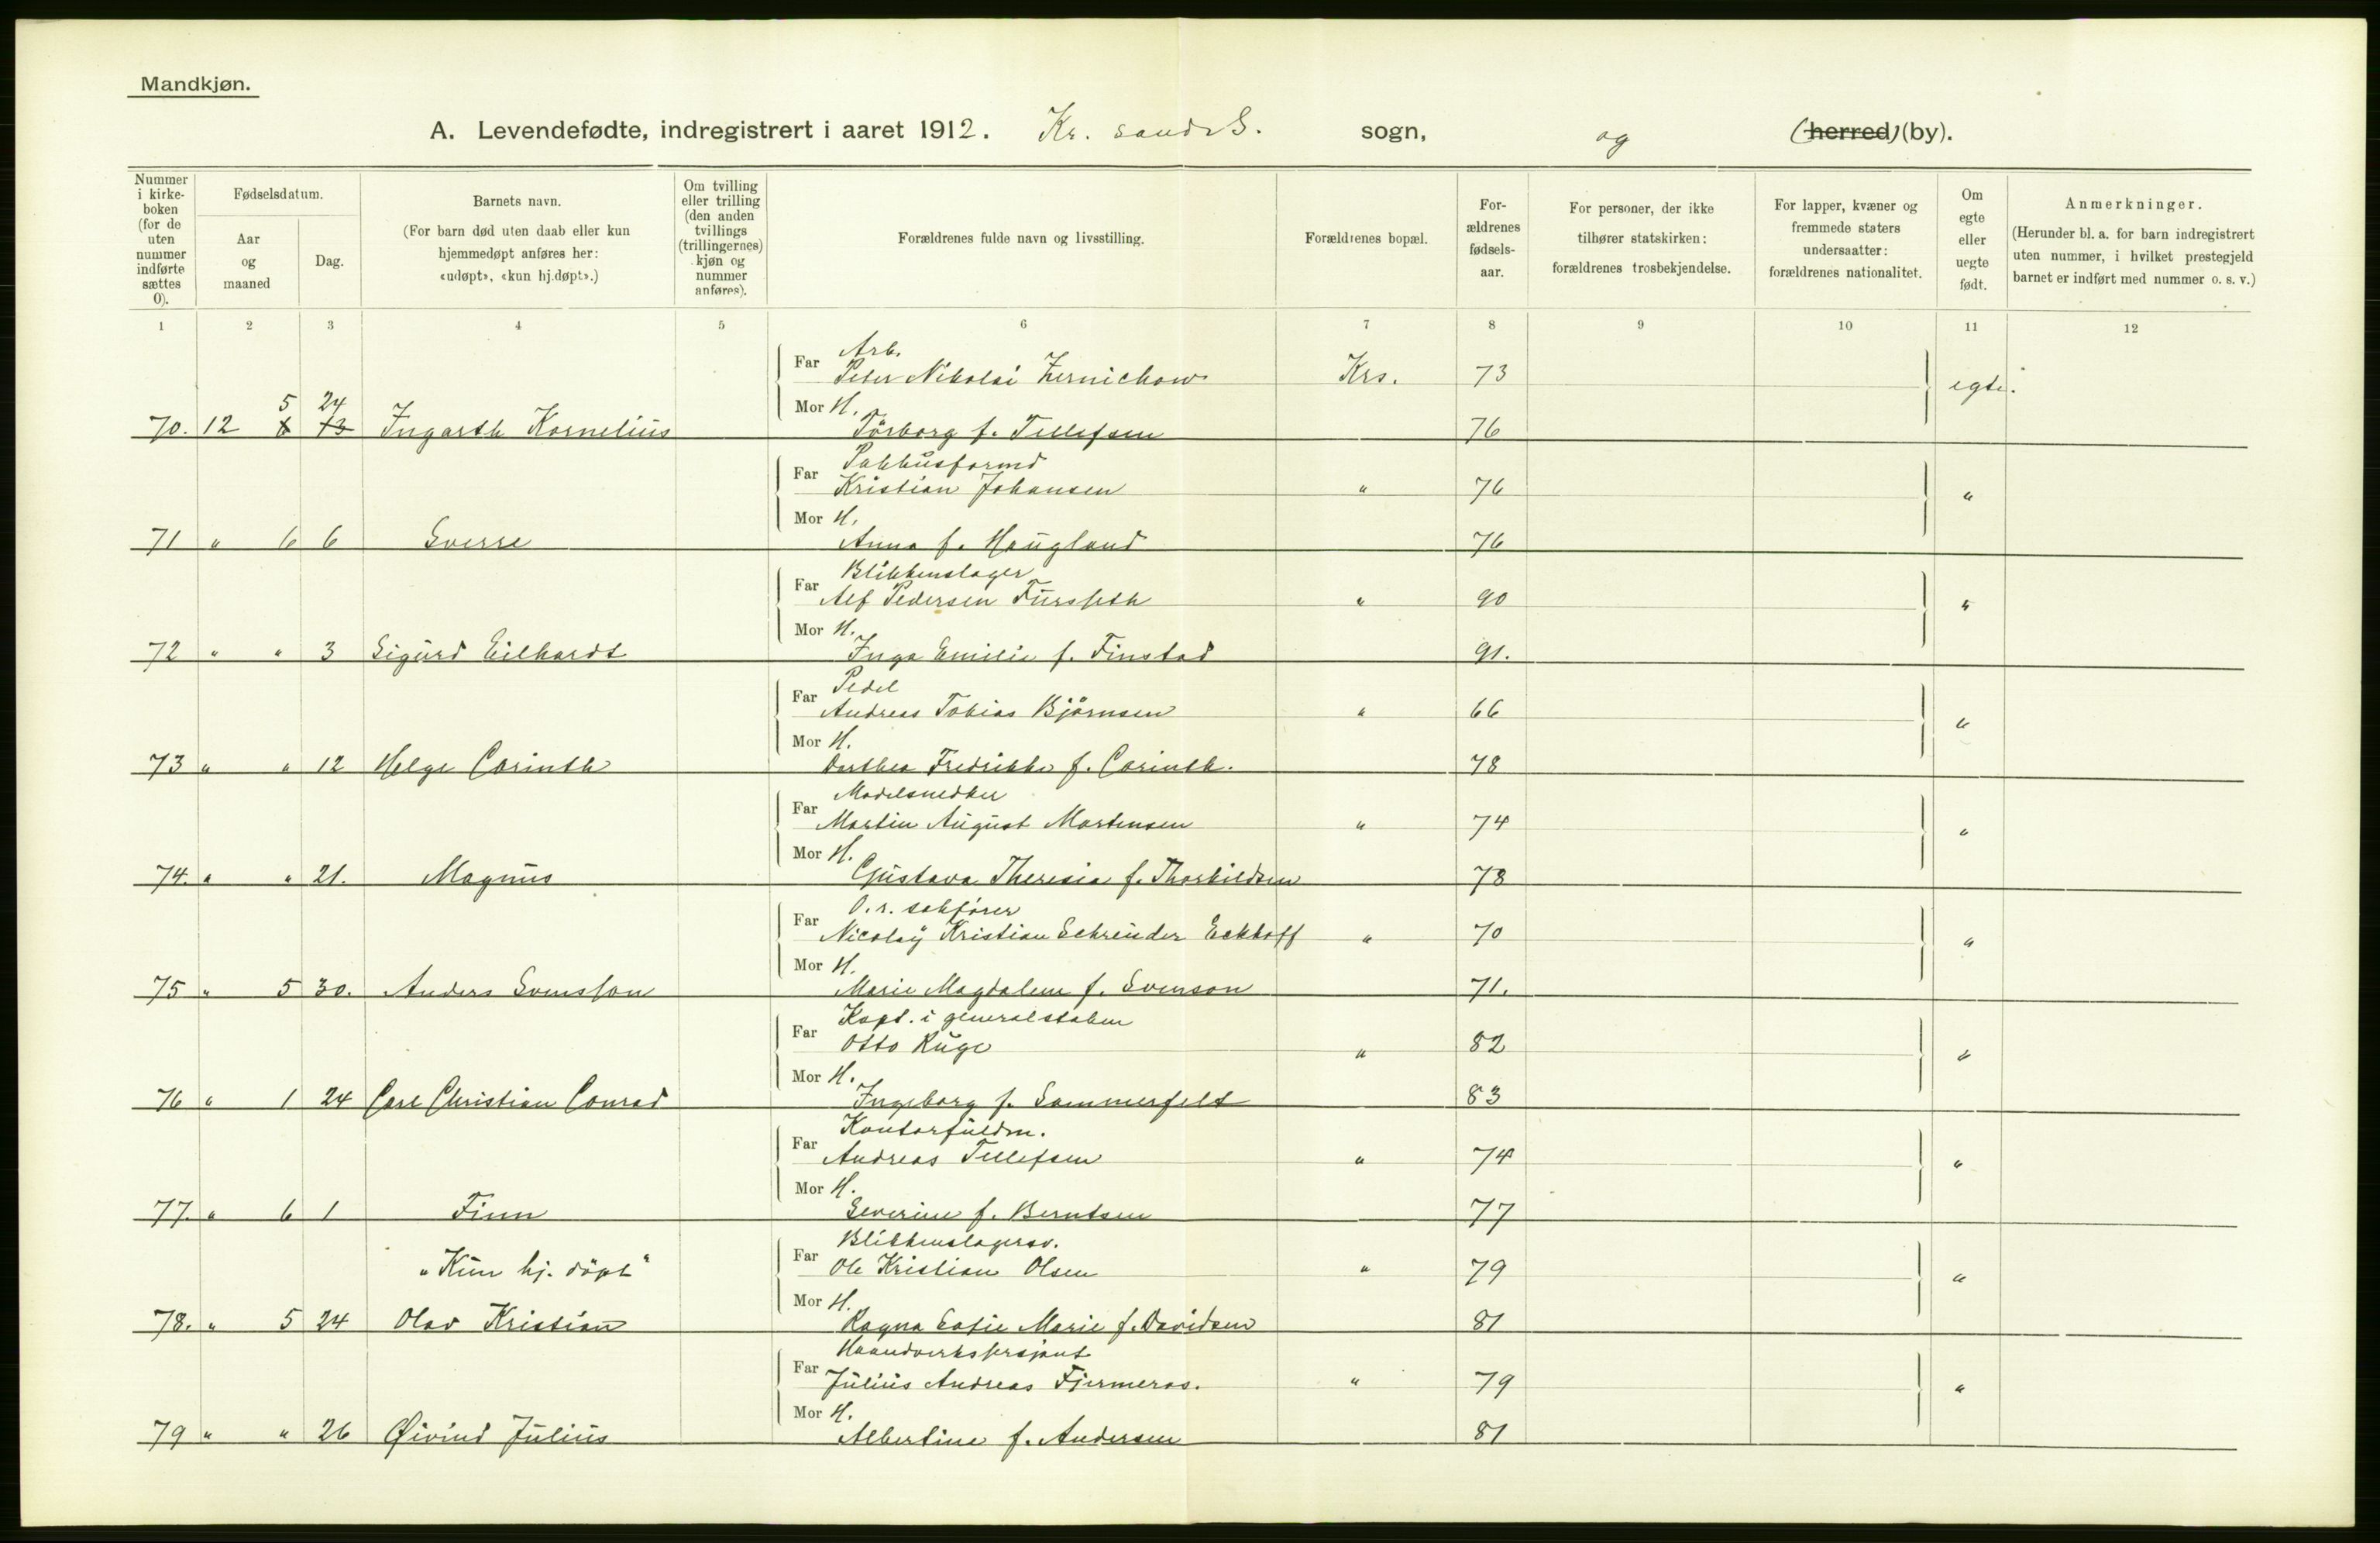 Mandkjøn.
A. Levendefødte, indregistrert i aaret 1912. Kr. sands S. sogn, og (herred) (by).
Nummer i kirke-boken (for de uten nummer indførte sættes 0).
Fødselsdatum.
Aar og maaned
Dag.
Barnets navn.
(For barn død uten daab eller kun hjemmedøpt anføres her: «udøpt», «kun hj.døpt».)
Om tvilling eller trilling (den anden tvillings (trillingernes) kjøn og nummer anføres).
Forældrenes fulde navn og livsstilling.
Forældrenes bopæl.
For-ældrenes fødsels-aar.
For personer, der ikke tilhører statskirken: forældrenes trosbekjendelse.
For lapper, kvæner og fremmede staters undersaatter: forældrenes nationalitet.
Om egte eller uegte født.
Anmerkninger.
(Herunder bl. a. for barn indregistrert uten nummer, i hvilket prestegjeld barnet er indført med nummer o. s. v.)
1 2 3 4 5 6 7 8 9 10 11 12
Arb.
Far Peter Nikolai Zernichow Krs. 73 egte.
5 24
Mor H.
70. 12 6 13 Ingarth Kornelius Torborg f. Tellefsen 76
Pakhusformd
Far Kristian Johansen " 76 "
Mor H.
71 " 6 6 Sverre Anna f. Haugland 76
Blikkenslager
Far Alf Pedersen Furseth " 90 "
Mor H.
72 " " 3 Sigurd Eilhardt Inga Emilie f. Finstad 91.
Pedel
Far Andreas Tobias Björnsen " 66 "
Mor H.
73 " " 12 Helge Corinth Dorthea Fredrikke f. Corinth. 78
Modelsnedker
Far Martin August Mortensen " 74 "
Mor H.
74. " " 21. Magnus Gustava Theresia f. Thorkildsen 78
O.r. sakfører
Far Nicolay Kristian Schreuder Eckhoff " 70 "
Mor H.
75 " 5 30. Anders Svensson Marie Magdalene f. Svenson 71.
Kapt. i generalstaben
Far Otto Ruge " 82 "
Mor H.
76 " 1 24 Carl Christian Conrad Ingeborg f. Sommerfelt 83
Kontorfuldm.
Far Andreas Tellefsen " 74 "
Mor H.
77. " 6 1 Finn Severine f. Berntsen 77
Blikkenslagersv.
"Kun hj. döpt" Far Ole Kristian Olsen " 79 "
Mor H.
78. " 5 24 Olav Kristian Ragna Sofie Marie f. Davidsen 81
Haandverkssersjant
Far Julius Andreas Fjermeros. " 79 "
Mor H.
79 " " 26 Øivind Julius Albertine f. Andersen 81